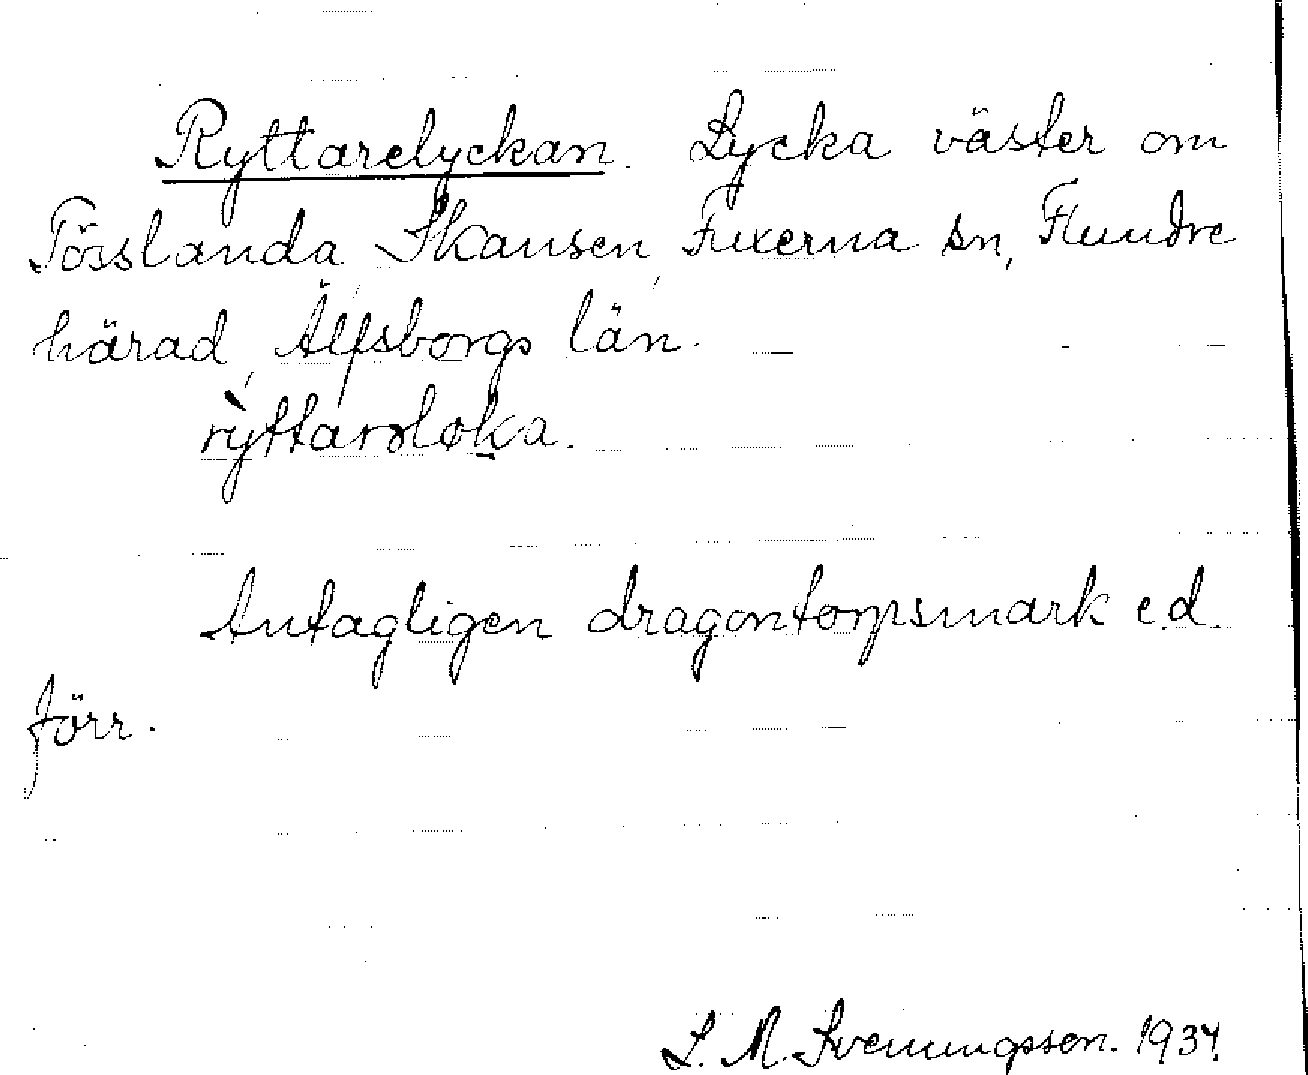 Ryttarelyckan. Lycka väster om
Tösslanda Skansen, Fuxerna sn, Flundre
härad, Älfsborgs län.
rỳttarəløka.
Antagligen dragontorpsmark e.d.
förr.
S. M. Svenungsson. 1934.